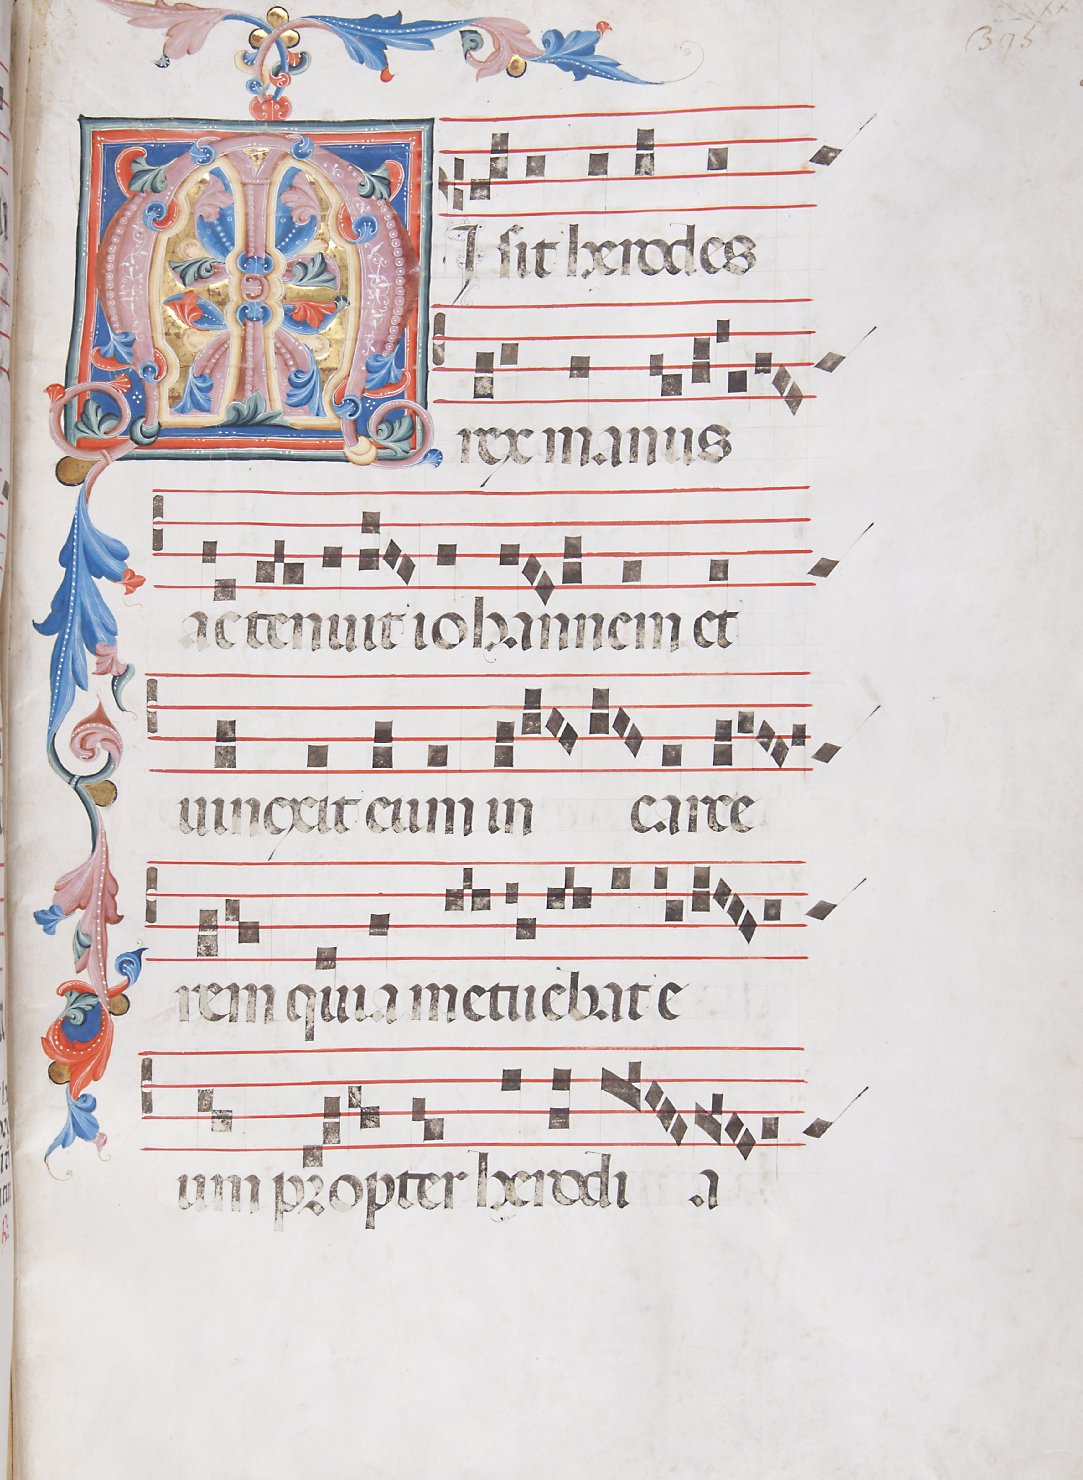 395
MIsit herodes
rex manus
ac tenuit iohannem et
uinexit eum in carce
rem quia metuebat e
um propter herodi a